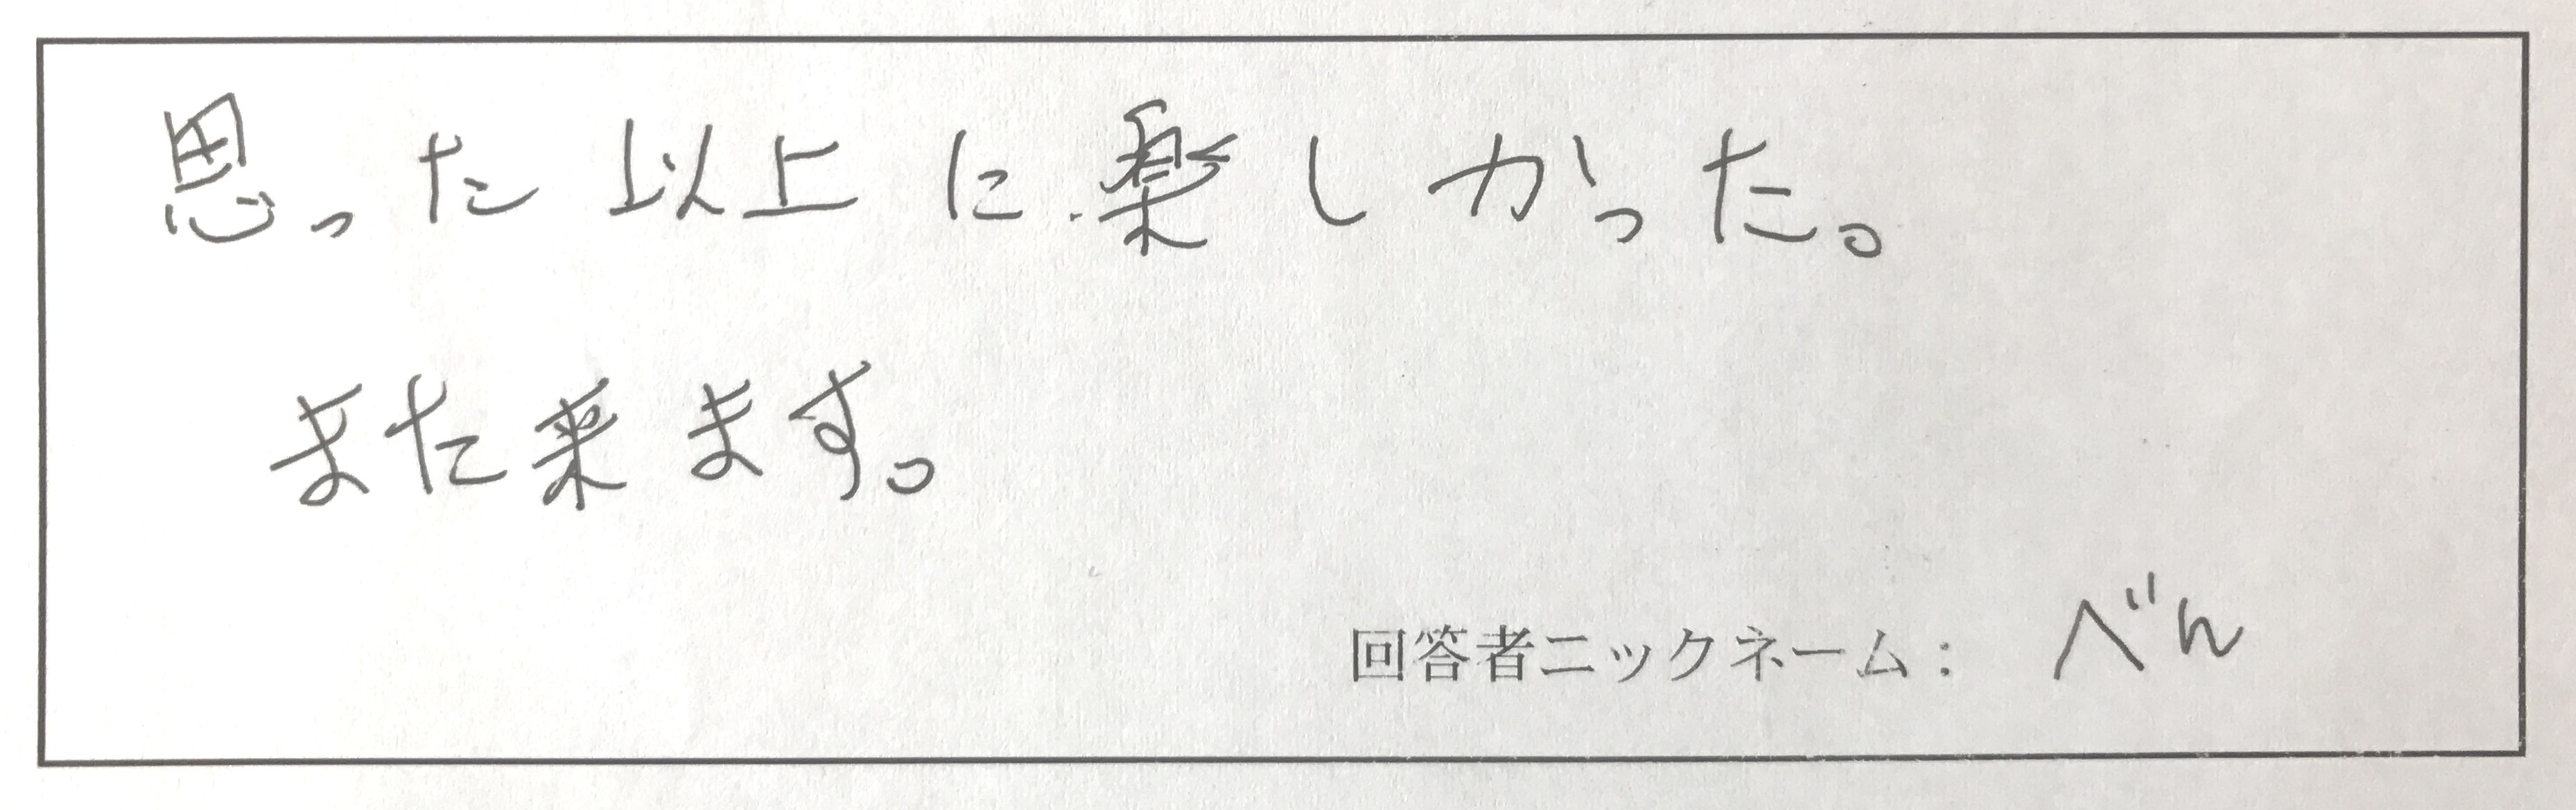 思った以上に楽しかった。
また来ます。
回答者ニックネーム： べん